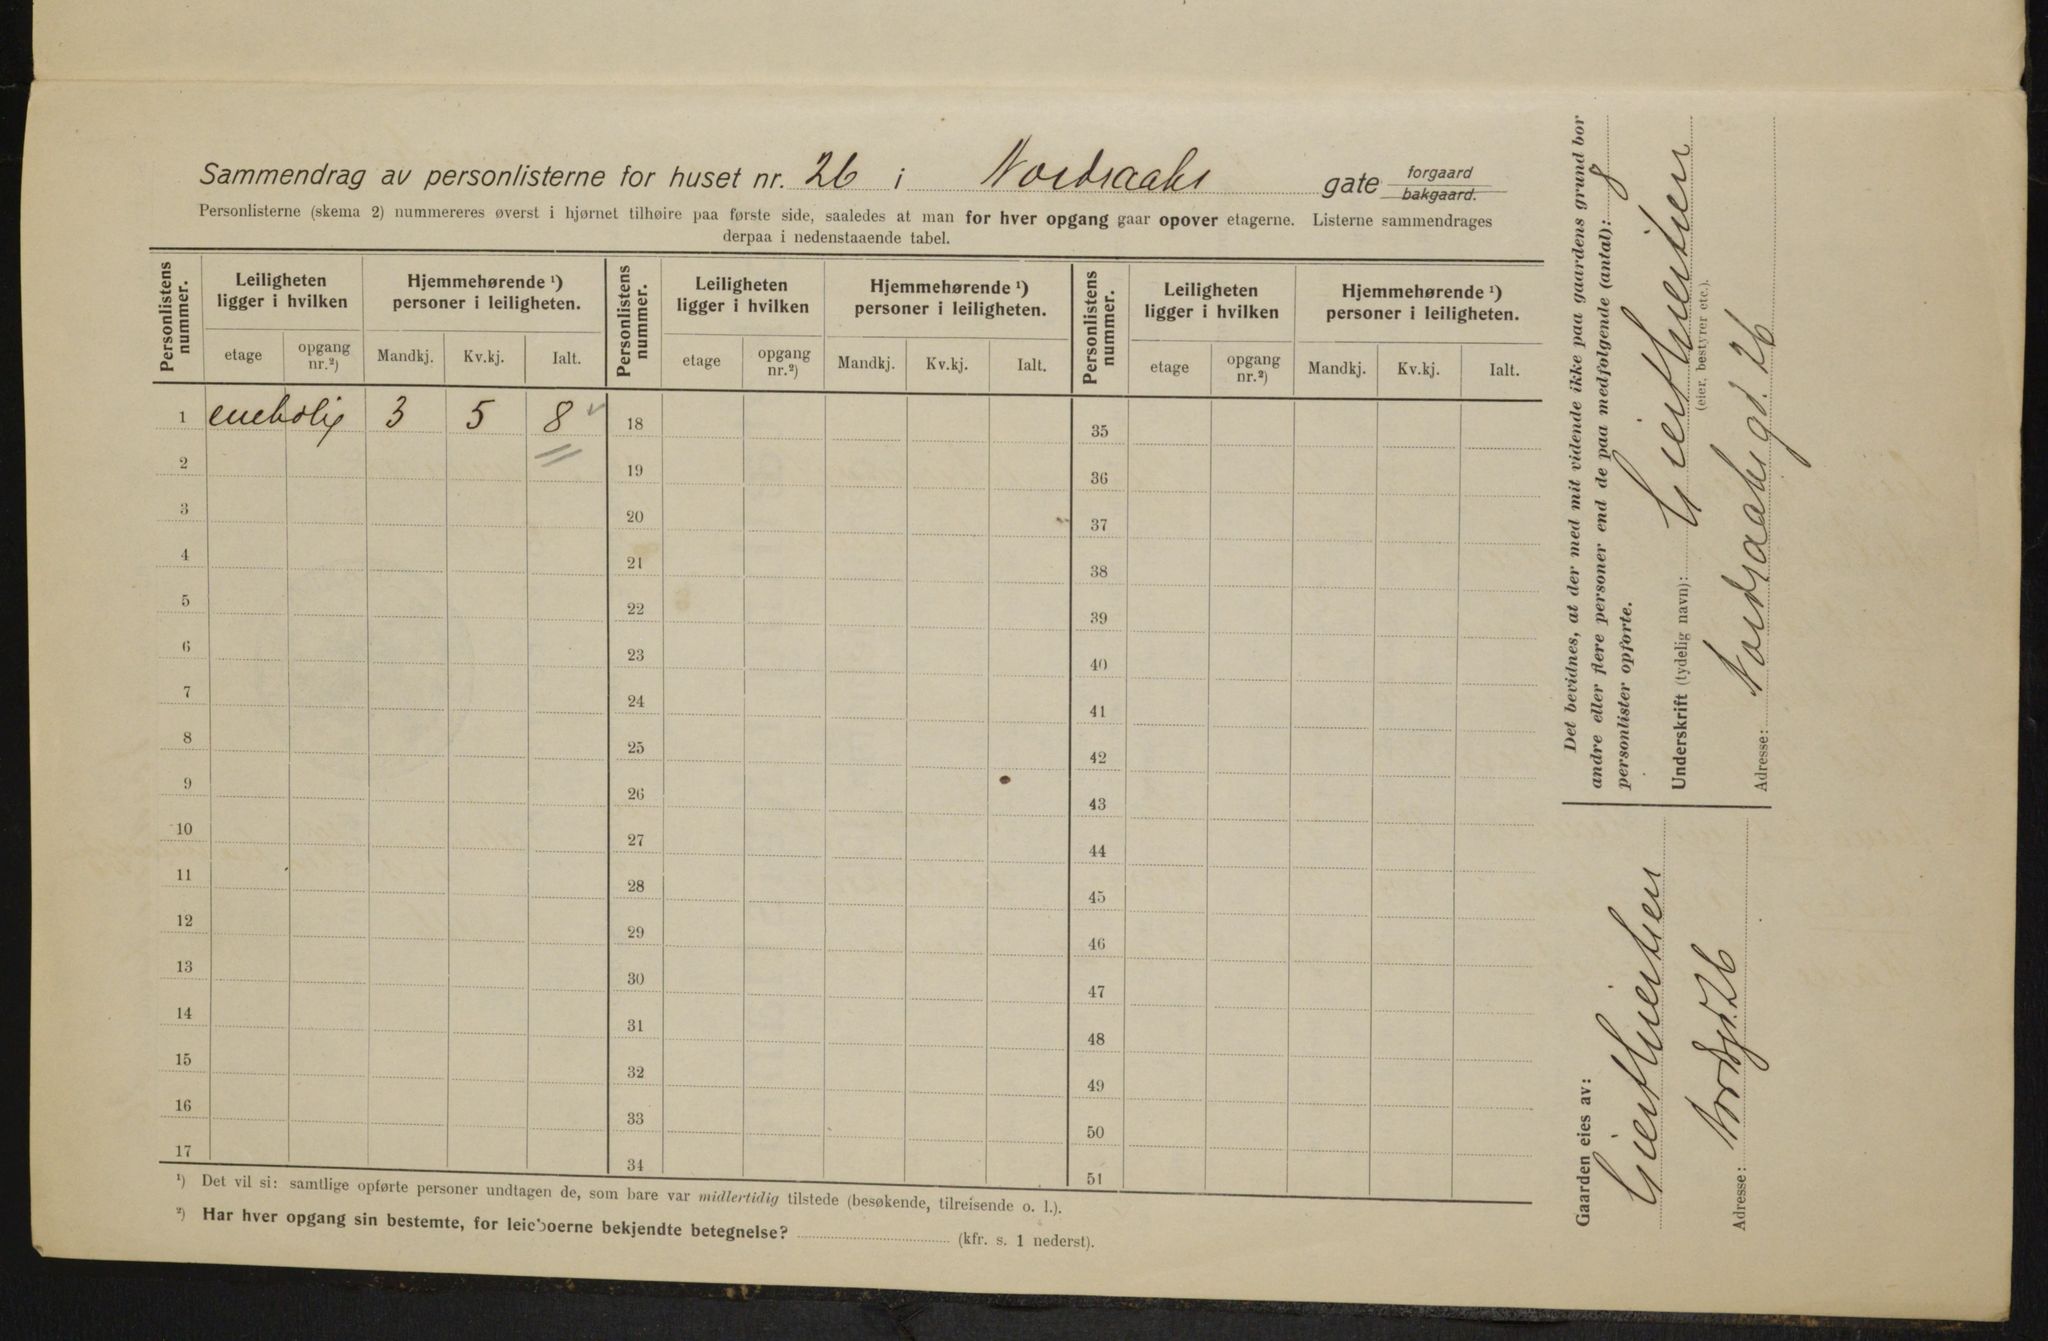 Sammendrag av personlisterne for huset nr. 26 i Nordraaks gate forgaard
bakgaard.
Personlisterne (skema 2) nummereres øverst i hjørnet tilhøire paa første side, saaledes at man for hver opgang gaar opover etagerne. Listerne sammendrages
derpaa i nedenstaaende tabel.
Personlistens nummer. Leiligheten ligger i hvilken Hjemmehørende ¹) personer i leiligheten. Personlistens nummer. Leiligheten ligger i hvilken Hjemmehørende ¹) personer i leiligheten. Personlistens nummer. Leiligheten ligger i hvilken Hjemmehørende ¹) personer i leiligheten.
etage opgang nr.²) Mandkj. Kv.kj. Ialt. etage opgang nr.²) Mandkj. Kv.kj. Ialt. etage opgang nr.²) Mandkj. Kv.kj. Ialt.
1 enebolig 3 5 8 18 35
2 19 36
3 20 37
4 21 38
5 22 39
6 23 40
7 24 41
8 25 42
9 26 43
10 27 44
11 28 45
12 29 46
13 30 47
14 31 48
15 32 49
16 33 50
17 34 51
¹) Det vil si: samtlige opførte personer undtagen de, som bare var midlertidig tilstede (besøkende, tilreisende o. l.).
²) Har hver opgang sin bestemte, for leieboerne bekjendte betegnelse? (kfr. s. 1 nederst).
Det bevidnes, at der med mit vidende ikke paa gaardens grund bor
andre eller flere personer end de paa medfølgende (antal): 8
personlister opførte.
Underskrift (tydelig navn):
(eier, bestyrer etc.).
Adresse: Nordraaksgt. 26
Gaarden eies av:
Adresse: 26